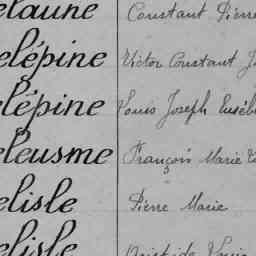 elaune Constant Pierre
elépine Victor Constant J
elépine Louis Joseph Eusèb
eleusme François Marie
elisle Pierre Marie
elisle Aristide Louis